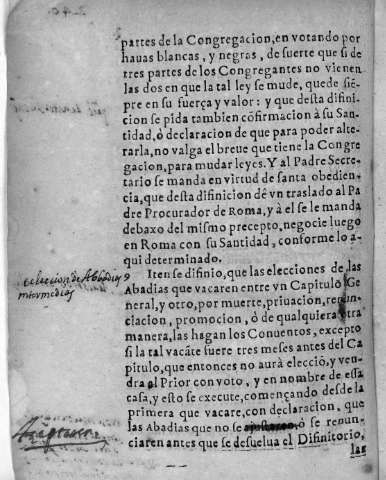 partes de la Congregacion, en votando por
hauas blancas, y negras, de suerte que si de
tres partes de los Congregantes no vienen
las dos en que la tal ley se mude, quede siẽ-
pre en su fuerça y valor: y que desta difini-
cion se pida tambien cõfirmacion à su San-
tidad, ò declaracion de que para poder alte-
rarla, no valga el breue que tiene la Congre
gacion, para mudar leyes. Y al Padre Secre-
tario se manda en virtud de santa obedien-
cia, que desta difinicion dè vn traslado al Pa
dre Procurador de Roma, y à el se le manda
debaxo del mismo precepto, negocie luego
en Roma con su Santidad, conforme lo a-
qui determinado.
Iten se difinio, que las elecciones de las
eleccion de Abbadias
intermedias
Abadias que vacaren entre vn Capitulo Ge
neral, y otro, por muerte, priuacion, renun
ciacion, promocion, ò de qualquiera otra
manera, las hagan los Conuentos, excepto
si la tal vacãte fuere tres meses antes del Ca
pitulo, que entonces no aurà elecciõ, y ven
drà el Prior con voto, y en nombre de essa
casa, y esto se execute, començando desde la
primera que vacare, con declaracion, que
las Abadias que no se ò se renun
ciaren antes que se desuelua el Difinitorio,
las